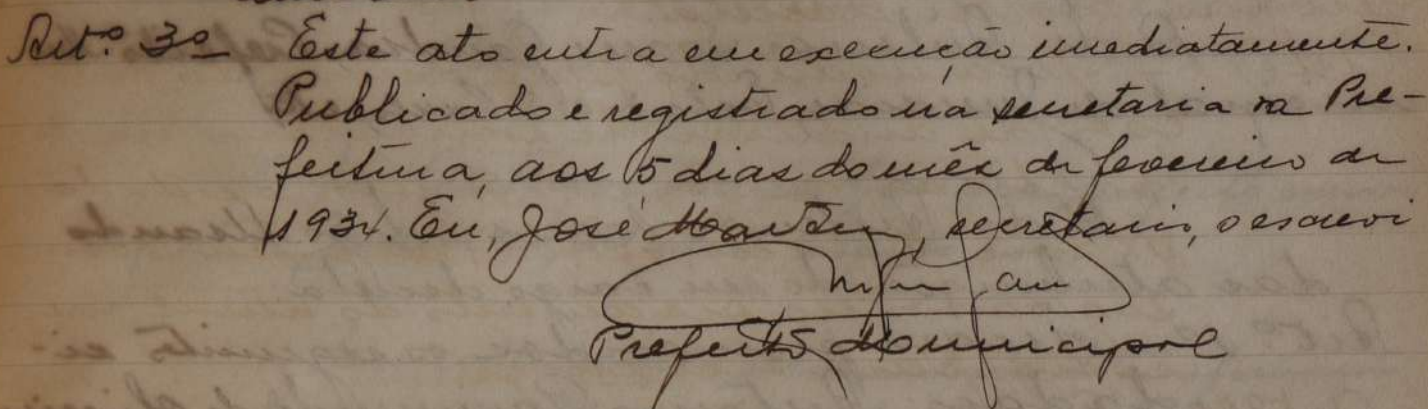 Art.º 3º Este ato entra em execução imediatamente.
Publicado e registrado na secretaria da Pre-
feitura, aos 5 dias do mês de fevereiro de
1934. Eu, José Martins, secretario, o escrevi
Prefeito Municipal